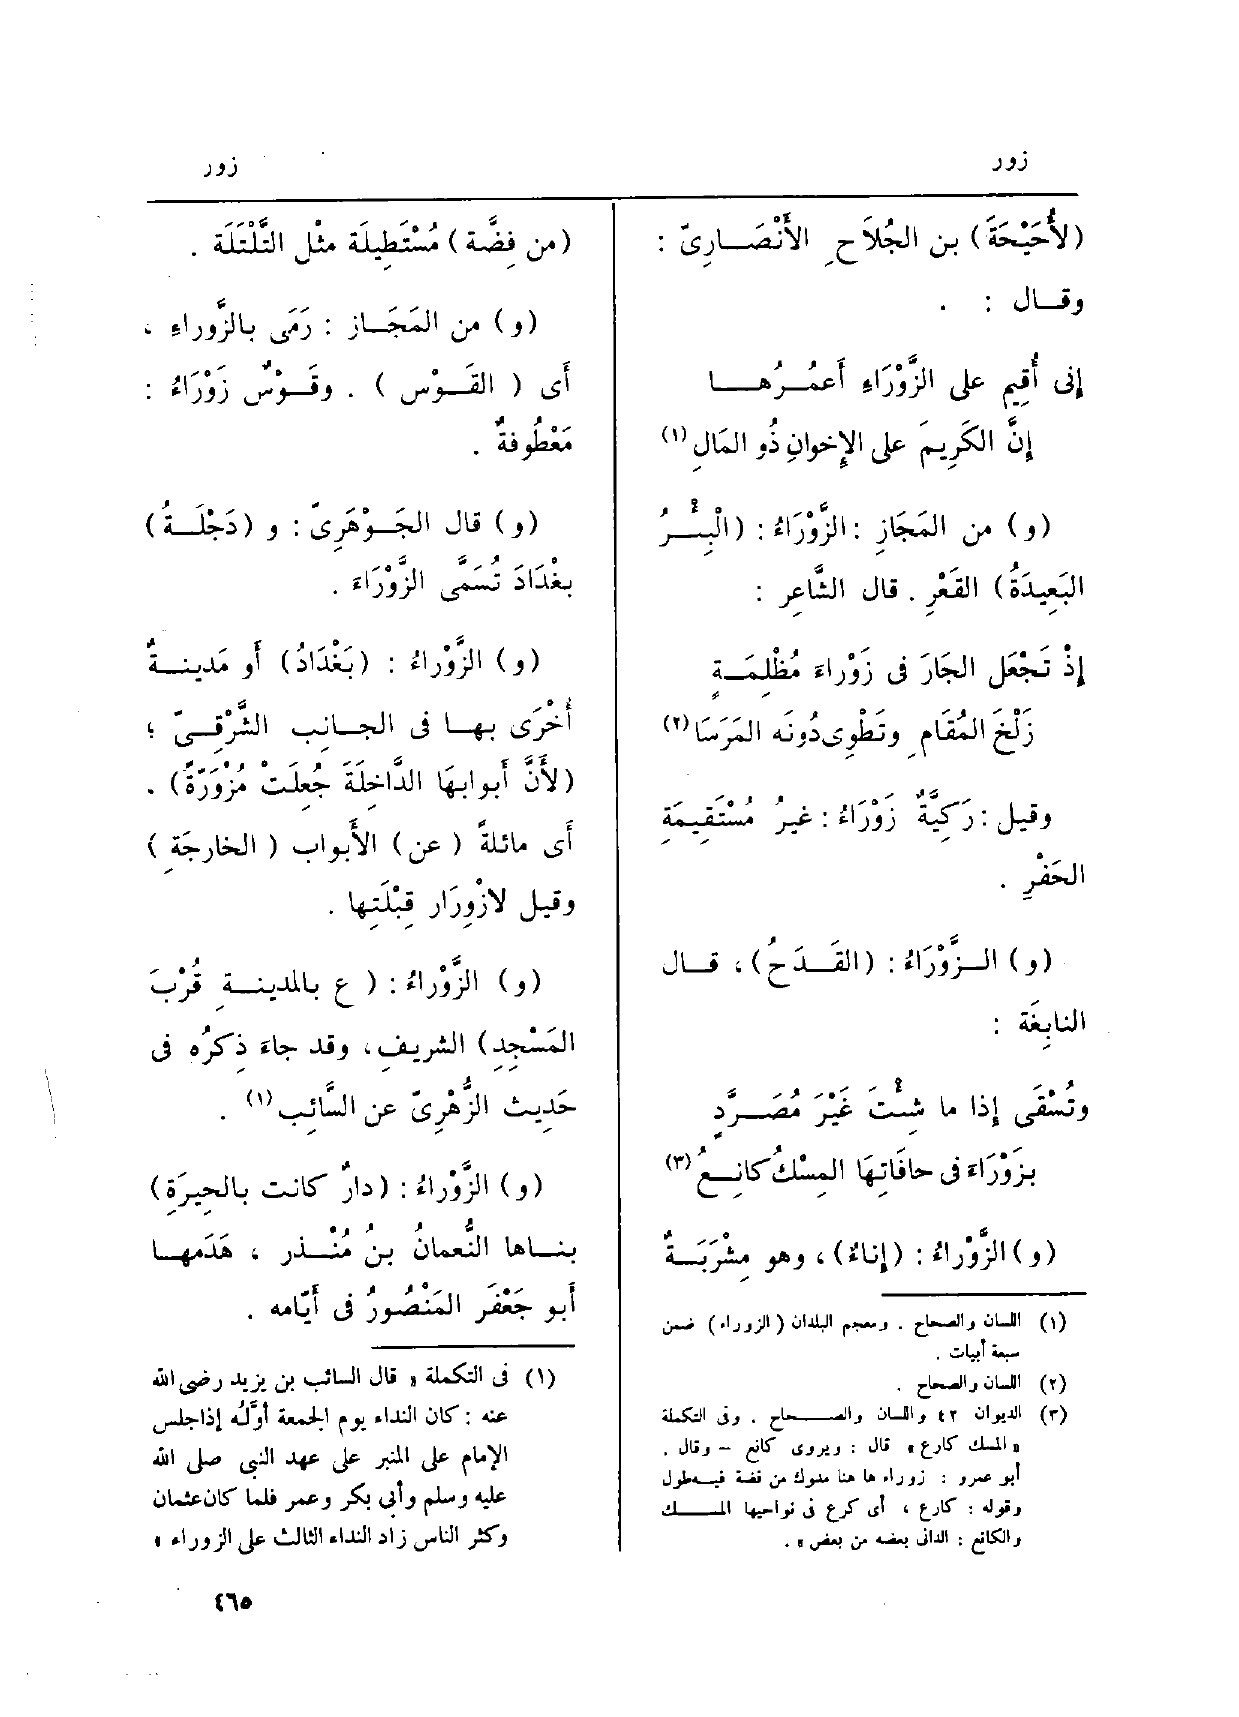 زور
زور
(لأُحَيْحَةَ) بن الجُلاَحِ الأَنْصَــارِىّ :
وقــال : .
إنى أُقِيم على الزَّوْرَاءِ أَعمُــرُهــا
إنَّ الكَرِيمَ على الإخوانِ ذُو المَالِ (١)
(و) من المَجَازِ : الزَّوْرَاءُ : (الْبِئْــرُ
البَعِيدَةُ) القَعْرِ . قال الشَّاعِر :
إذْ تَجْعَل الجَارَ فى زَوْراءَ مُظْلِمَــةٍ
زَلْخَ المُقَامِ وتَطْوِى دُونَه المَرَسَا (٢)
وقيل : رَكِيَّةٌ زَوْرَاءُ : غيرُ مُسْتَقِيمَةِ
الحَفْرِ .
(و) الــزَّوْرَاءُ : (القَــدَحُ) ، قــال
النابِغَة :
وتُسْقَى إذا ما شِئْتَ غَيْرَ مُصَــرَّدٍ
بزَوْرَاءَ فى حافَاتِهَا المِسْكُ كانِــعُ (٣)
(و) الزَّوْراءُ : (إناءٌ) ، وهو مِشْرَبَــةٌ
(١) اللسان والصحاح . ومعجم البلدان (الزوراء) ضمن
سبعة أبيات .
(٢) اللسان والصحاح .
(٣) الديوان ٤٢ واللسان والصــحاح . وفى التكملة
«المسك كارع» قال : ويروى كانع – وقال .
أبو عمرو : زوراء ها هنا مكوك من فضة فيــه طول
وقوله : كارع ، أى كرع فى نواحيها المســك
والكانع : الدانى بعضه من بعض » .
(من فِضَّة) مُسْتَطِيلَة مثْل التَّلْتَلَة .
(و) من المَجَــاز : رَمَى بالزَّوراءِ ،
أى ( القَــوْس ) . وقَــوْسٌ زَوْرَاءُ :
مَعْطُوفةٌ .
(و) قال الجَــوْهَرِىّ : و (دَجْلَــةُ)
بغْدَادَ تُسَمَّى الزَّوْرَاءَ .
(و) الزَّوْراءُ : (بَغْدَادُ) أو مَدينــةٌ
أُخْرَى بهــا فى الجــانِب الشَّرْقِــىّ ؛
(لأَنَّ أبوابهَا الدَّاخِلَةَ جُعلَتْ مُزْوَرَّةً) .
أى مائلةً ( عن) الأَبواب ( الخارجَةِ )
وقيل لازْوِرَار قِبْلَتِها .
(و) الزَّوْراءُ : ( ع بالمدينــةِ قُرْبَ
المَسْجِدِ) الشريفِ ، وقد جاءَ ذِكرُه فى
حَدِيث الزُّهْرِىّ عن السَّائِب (١) .
(و) الزَّوْراءُ : (دارٌ كانت بالحِيرَةِ)
بنــاها النُّعمانُ بنُ مُنْــذر ، هَدَمهــا
أبو جَعْفَر المَنْصُورُ فى أيّامه .
(١) فى التكملة « قال السائب بن يزيد رضى الله
عنه : كان النداء يوم الجمعة أوّله إذا جلس
الإمام على المنبر على عهد النبى صلى الله
عليه وسلم وأبى بكر وعمر فلما كان عثمان
وكثر الناس زاد النداء الثالث على الزوراء »
٤٦٥